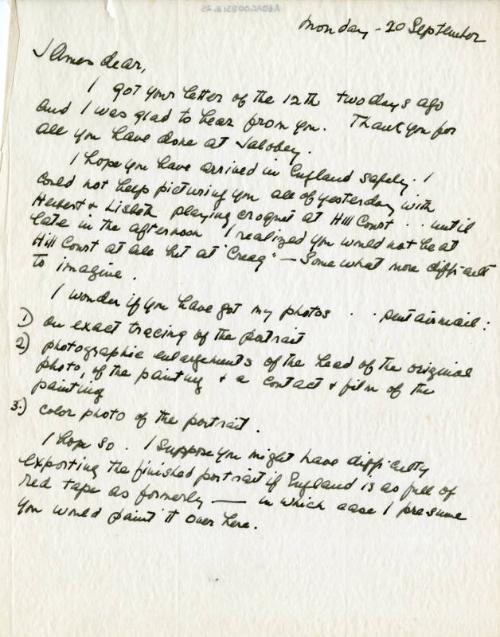 Monday - 20 September
James dear,
I got your letter of the 12th two days ago
and I was glad to hear from you. Thank you for
all you have done at Jalobey.
I hope you have arrived in England safely. I
could not help picturing you all of yesterday with
Herbert & Lisbeth playing croquet at Hill Court .. until
late in the afternoon I realized you would not be at
Hill Court at all but at "Creag" — somewhat more difficult
to imagine.
I wonder if you have got my photos .. sent airmail:
1) an exact tracing of the portrait
2) photographic enlargements of the head of the original
photo, of the painting & a contact & film of the
painting
3.) color photo of the portrait.
I hope so. I suppose you might have difficulty
exporting the finished portrait if England is as full of
red tape as formerly — in which case I presume
you would paint it over here.